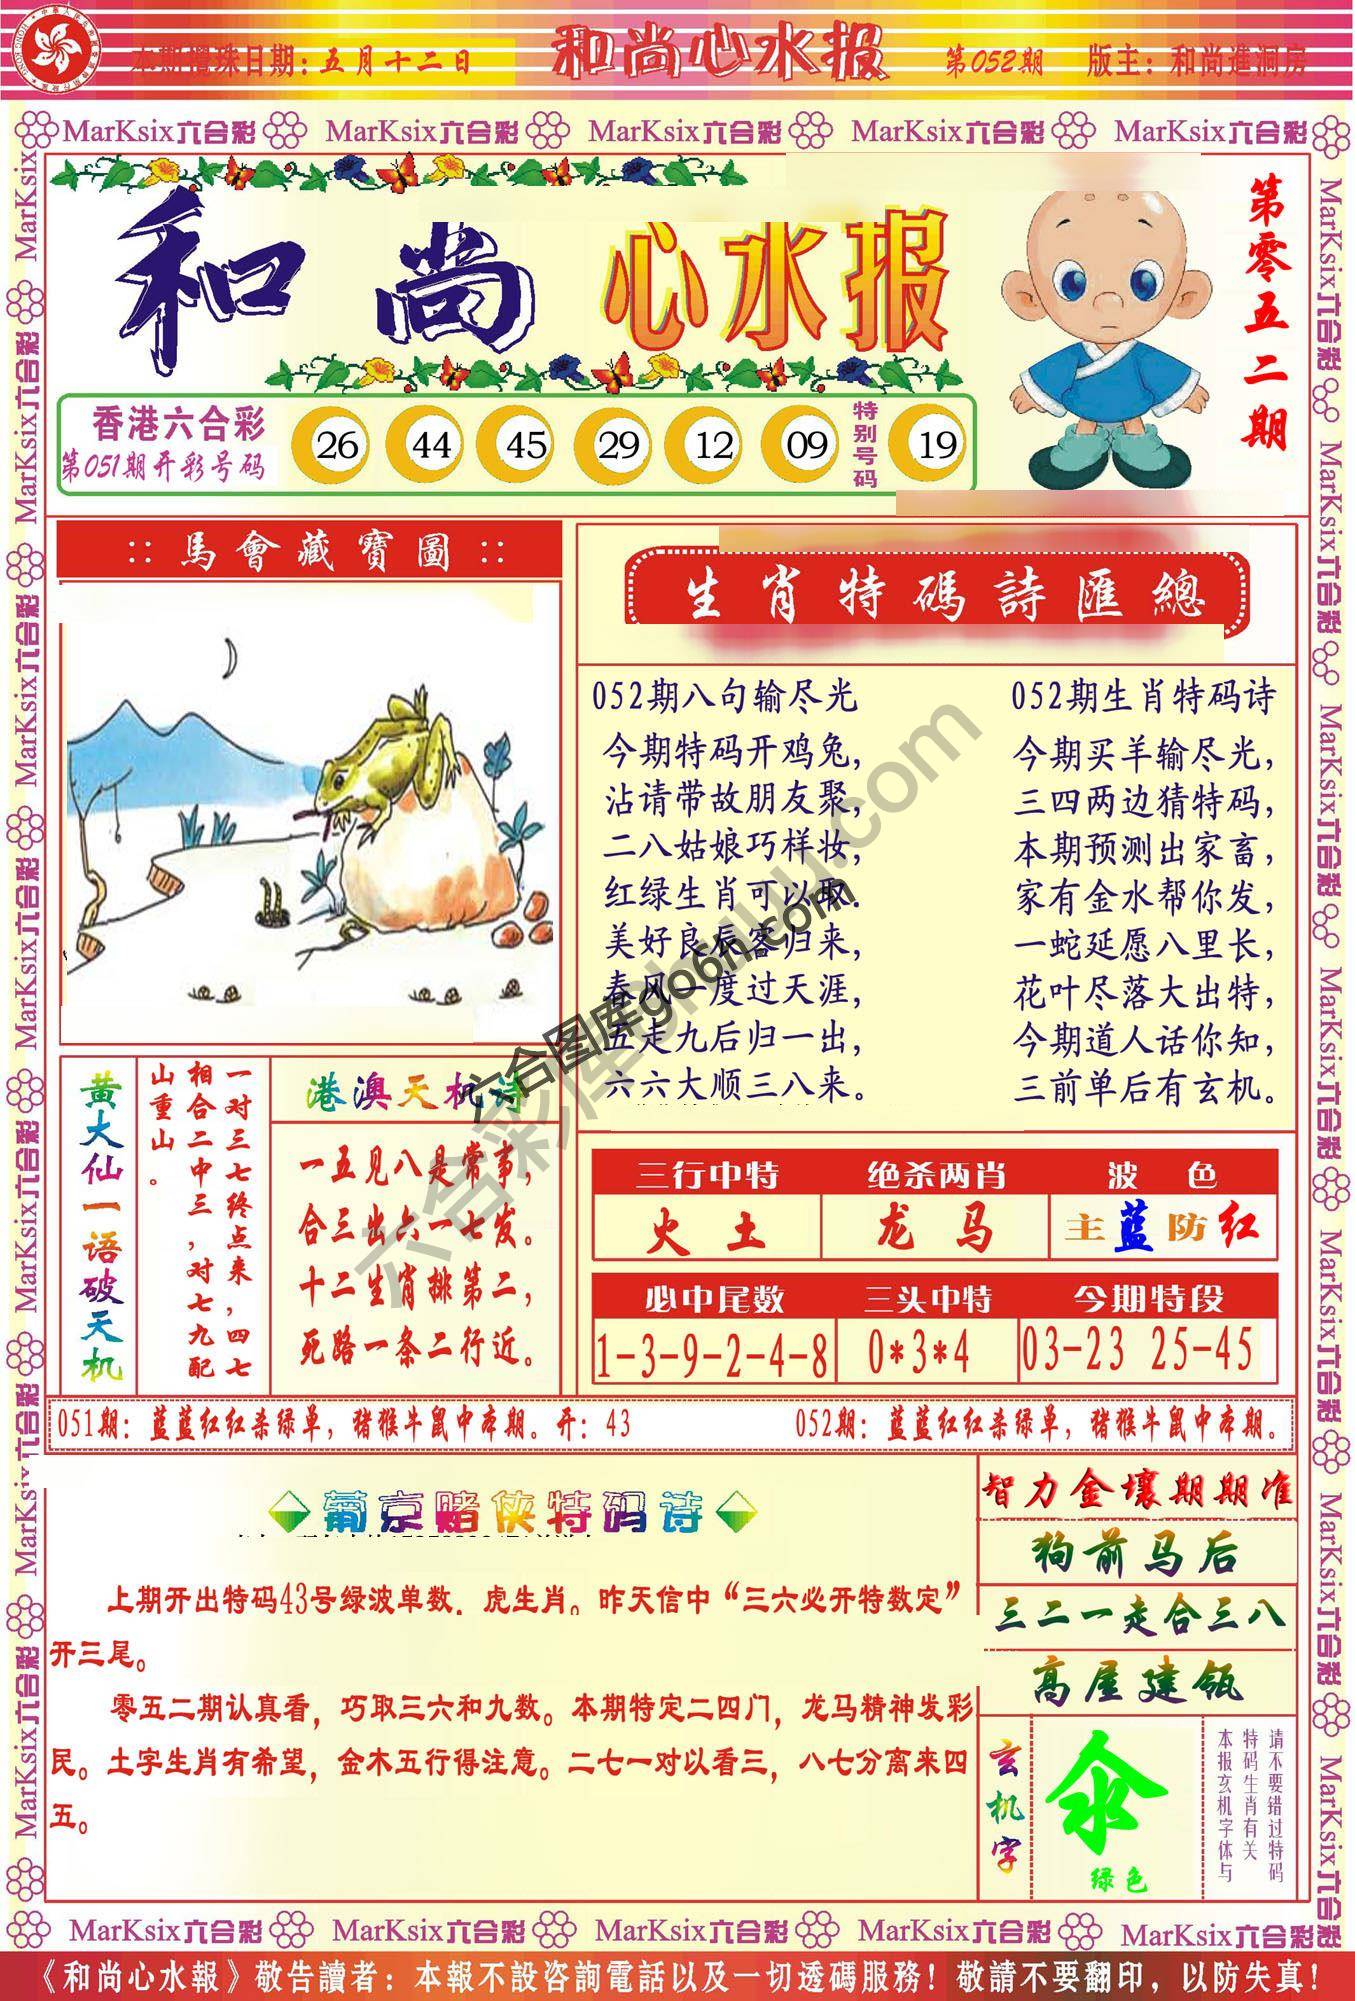 本期攪珠日期：五月十二日
和尚心水报
第052期
版主：和尚進洞房
MarKsix六合彩 MarKsix六合彩 MarKsix六合彩 MarKsix六合彩 MarKsix六合彩
和尚心水报
第零五二期
香港六合彩
第051期开彩号码
26 44 45 29 12 09 特别号码 19
::馬會藏寶圖::
生肖特碼詩匯總
052期八句输尽光
今期特码开鸡兔，
沾请带故朋友聚，
二八姑娘巧样妆，
红绿生肖可以取.
美好良辰客归来，
春风一度过天涯，
五走九后归一出，
六六大顺三八来。
052期生肖特码诗
今期买羊输尽光，
三四两边猜特码，
本期预测出家畜，
家有金水帮你发，
一蛇延愿八里长，
花叶尽落大出特，
今期道人话你知，
三前单后有玄机。
黄大仙一语破天机
一对三七终点来，四七
相合二中三，对七九配
山重山。
港澳天机诗
一五见八是常事，
合三出六一七发。
十二生肖排第二，
死路一条二行近。
三行中特 绝杀两肖 波色
火土 龙马 主蓝防红
必中尾数 三头中特 今期特段
1-3-9-2-4-8 0*3*4 03-23 25-45
051期：蓝蓝红红杀绿单，猪猴牛鼠中本期。开：43
052期：蓝蓝红红杀绿单，猪猴牛鼠中本期。
葡京赌侠特码诗
上期开出特码43号绿波单数，虎生肖。昨天信中“三六必开特数定”
开三尾。
零五二期认真看，巧取三六和九数。本期特定二四门，龙马精神发彩
民。土字生肖有希望，金木五行得注意。二七一对以看三，八七分离来四
五。
智力金壤期期准
狗前马后
三二一走合三八
高屋建瓴
玄机字
汆
绿色
请不要错过特码
特码生肖有关
本报玄机字体与
六合图库go6h.com
MarKsix六合彩 MarKsix六合彩 MarKsix六合彩 MarKsix六合彩 MarKsix六合彩
《和尚心水報》敬告讀者：本報不設咨詢電話以及一切透碼服務！敬請不要翻印，以防失真！